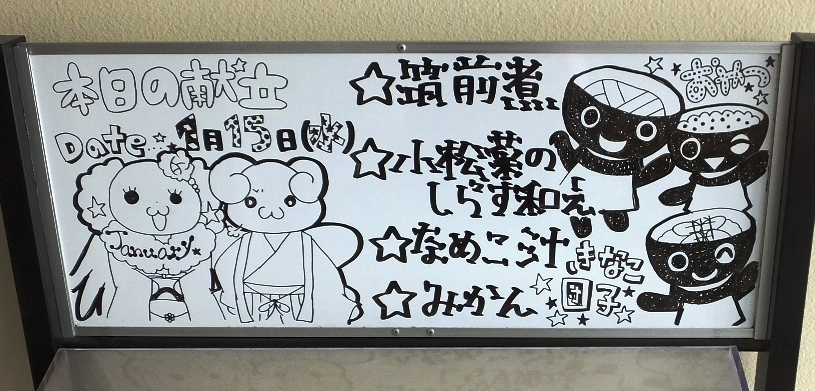 本日の献立
Date 1月15日(水)
January
☆筑前煮
☆小松菜の
しらす和え
☆なめこ汁
☆みかん
おやつ
きなこ
団子